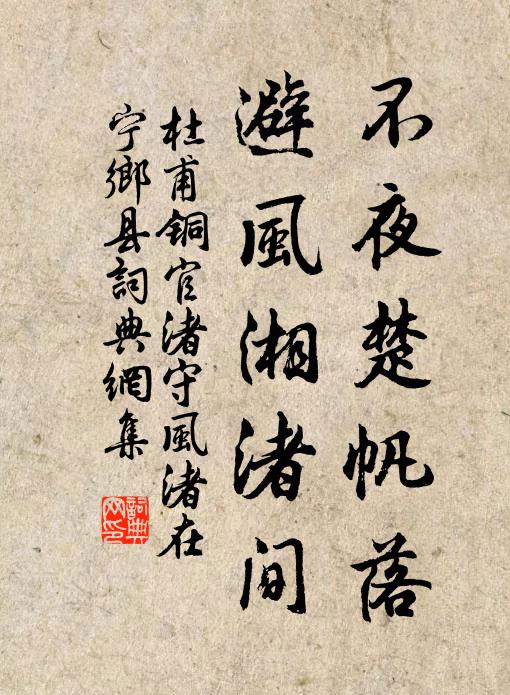 不夜楚帆落
避風湘渚間
杜甫銅官渚守風渚在
宁鄉县詞典網集
詞典網印